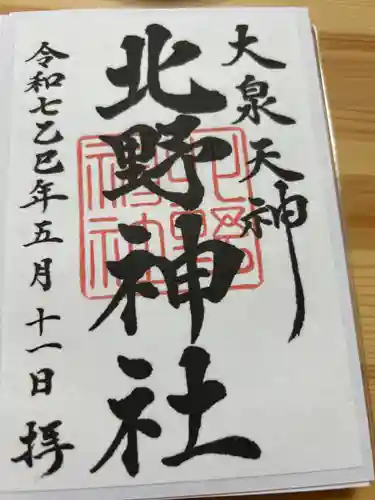 大泉天神
北野神社
令和七乙巳年五月十一日 拝
北野
神社